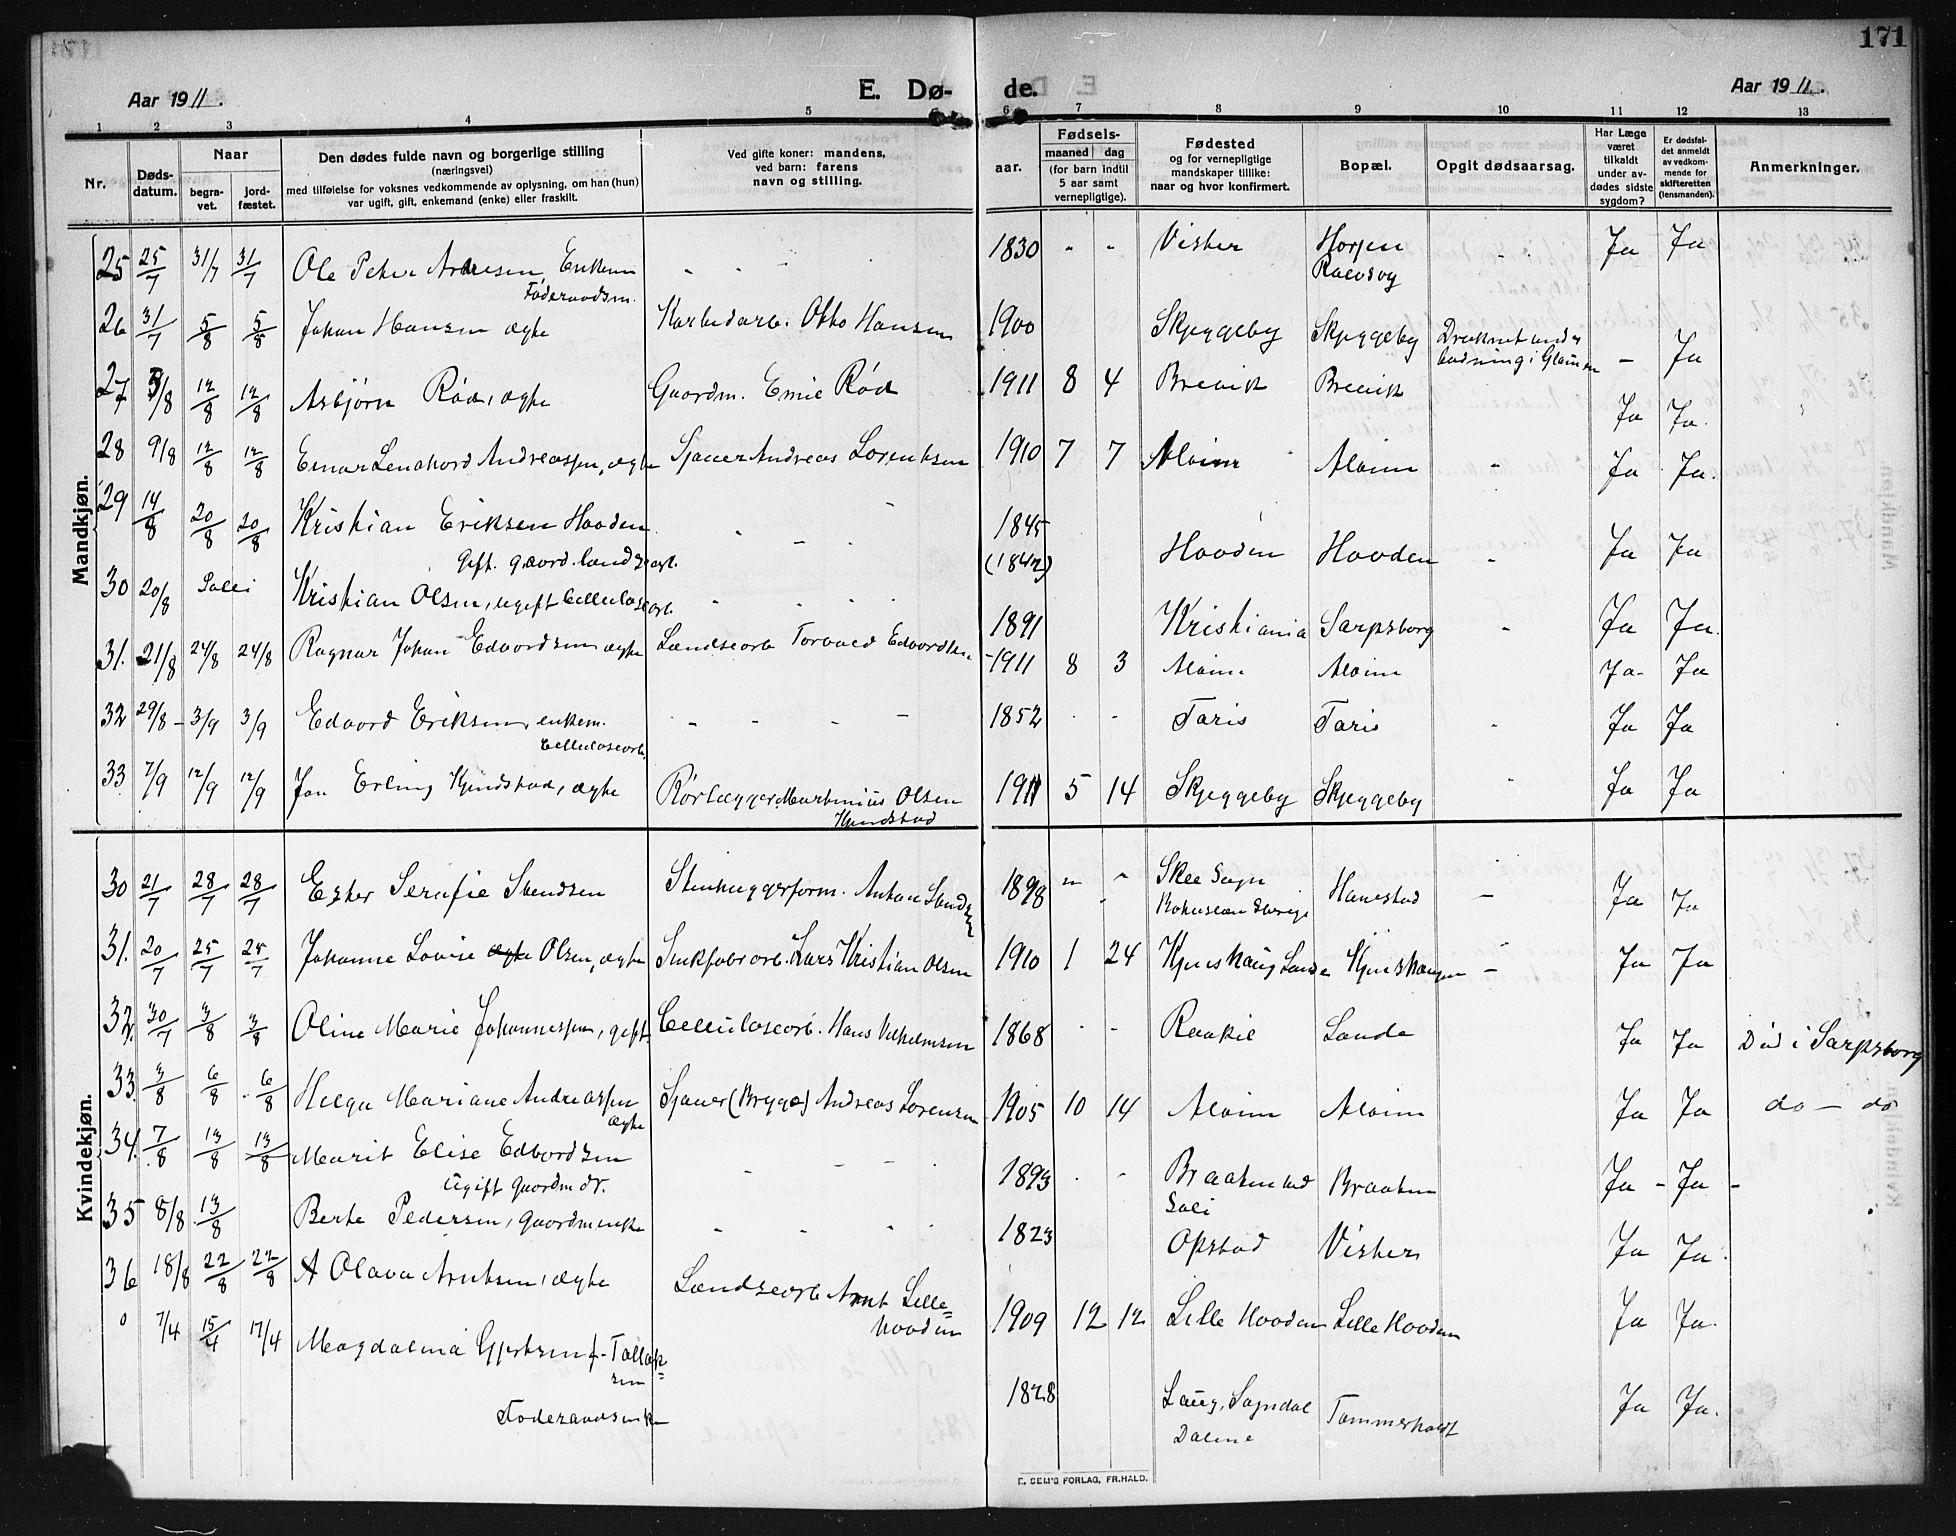 171
Aar 1911.
E. Dø- de.
Aar 1911.
1 2 3 4 5 6 7 8 9 10 11 12 13
Nr.
Døds-
datum.
Naar
begra-
vet.
jord-
fæstet.
Den dødes fulde navn og borgerlige stilling
(næringsvei)
med tilføielse for voksnes vedkommende av oplysning, om han (hun)
var ugift, gift, enkemand (enke) eller fraskilt.
Ved gifte koner: mandens,
ved barn: farens
navn og stilling.
aar.
Fødsels-
maaned dag
(for barn indtil
5 aar samt
vernepligtige).
Fødested
og for vernepligtige
mandskaper tillike:
naar og hvor konfirmert.
Bopæl.
Opgit dødsaarsag.
Har Læge
været
tilkaldt
under av-
dødes sidste
sygdom?
Er dødsfal-
det anmeldt
av vedkom-
mende for
skifteretten
(lensmanden).
Anmerkninger.
Mandkjøn.
25 25/7 31/7 31/7 Ole Peter Andresen, Enkem - - - 1830 - - Vister Horjen Ja Ja
Føderaadsm. Raevsog
26 31/7 5/8 5/8 Johan Hansen ægte Karbidarb. Otto Hansen 1900 Skjeggeby Skjeggeby Druknet under
badning i Glommen - Ja
27 5/8 12/8 12/8 Asbjørn Rød, ægte Gaardm. Emil Rød 1911 8 4 Brevik Brevik Ja Ja.
28 9/8 12/8 12/8 Einar Lenahard Andreassen, ægte Sjauer Andreas Lorentsen 1910 7 7 Alvim Alvim - Ja Ja.
29 14/8 20/8 20/8 Kristian Eriksen Haaden - - - 1845
gift. gaard. landsarb. (1842) Haaden Haaden - Ja Ja
30 20/8 Soli Kristian Olsen, ugift Cellulosearb. - - - 1891 Kristiania Sarpsborg - Ja Ja.
31. 21/8 24/8 24/8 Ragnar Johan Edvardsen ægte Landsearb Torvald Edvardsen 1911 8 3 Alvim Alvim Ja- Ja
32 29/8 - 3/9 3/9 Edvard Eriksen, enkem. - - - - 1852 - - Taris Taris - Ja Ja
Cellulosearb.
33 7/9 12/9 12/9 Jon Erling Kjindstad, ægte Rørlægger Martinius Olsen 1911 5 14 Skjeggeby Skjeggeby Ja Ja
Kjindstad
Kvindekjøn.
30 21/7 28/7 28/7 Ester Serafie Svendsen Stenhuggerform. Anton 1898 - - Skee Sogn Hanestad - Ja Ja
31. 20/7 25/7 25/7 Johanne Lovise ægte Olsen, ægte Sinkfabrarb. Lars Kristian Olsen 1910 1 24 Kjershaug Sande Kjershaugen - Ja Ja
32. 30/7 3/8 3/8 Oline Marie Johannessen, gift. Cellulosearb. Hans Vilhelmsen 1868 - - Raakil Sande Ja Ja Død i Sarpsborg
33. 3/8 6/8 6/8 Helga Mariane Andreassen Sjauer (Brygge) Andreas Lorensen 1905 10 14 Alvim Alvim Ja Ja do - do
ægte
34. 7/8 13/8 13/8 Marit Elise Edvardsen - - - 1893 - - Braaten ved Braaten Ja - Ja -
Ugift Gaardm dr. Soli
35 8/8 13/8 Berte Pedersen, Gaardmenke - - - 1823 Opstad Visters Ja Ja.
36 18/8 22/8 22/8 A Olava Arntsen, ægte Landsearb Arnt Lille= 1909 12 12 Lille Haaden Lille Haaden Ja Ja.
haaden
0 7/4 15/4 17/4 Magdalena Gjertsen f. Tallak=
sen
Føderaadsenke 1828 Laug, Sogndal Tommerholt Ja Ja.
Dalene
E. SEM'S FORLAG, FR.HALD.